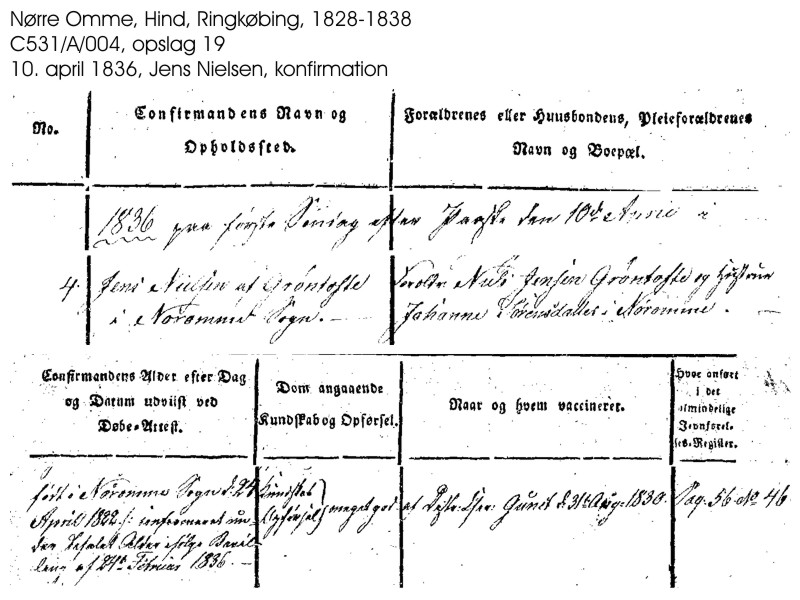 Nørre Omme, Hind, Ringkøbing, 1828-1838
C531/A/004, opslag 19
10. april 1836, Jens Nielsen, konfirmation
No.
Confirmandens Navn og
Opholdssted.
Forældrenes eller Huusbondens, Pleieforældrenes
Navn og Boepæl.
1836 paa første Søndag efter Paaske den 10de i
4.
Jens Nielsen af Grøntofte
i Noromme Sogn.
Niels Jensen Grøntofte og Hustrue
Johanne Sørensdatter i Noromme.
Confirmandens Alder efter Dag
og Datum udviist ved
Døbe-Attest.
Dom angaaende
Kundskab og Opførsel.
Naar og hvem vaccineret.
Hvor anført
i det
almindelige
Jevnførel-
ses-Register.
født i Noromme Sogn d: 24
April 1822 /: confirmeret un-
der befalet Alder ifølge Bevil-
ling af 24de Februar 1836. -
Kundskab
Opførsel } meget god
af Distr. Gunst d. 31te Aug. 1830.
Pag. 56 No 46